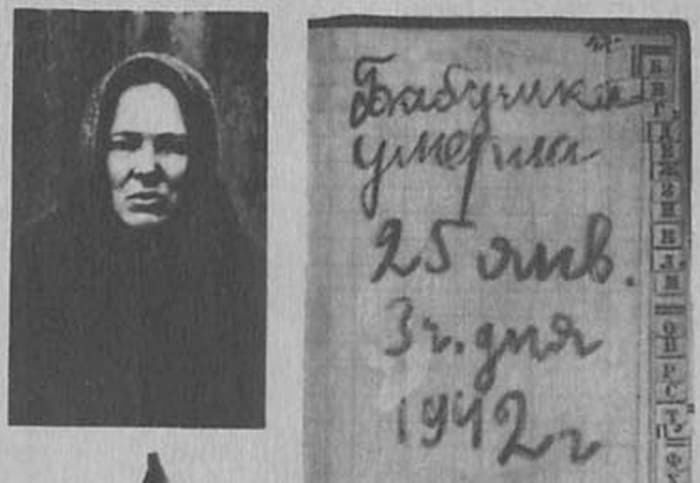 Бабушка
умерла
25 янв.
3 ч. дня
1942 г